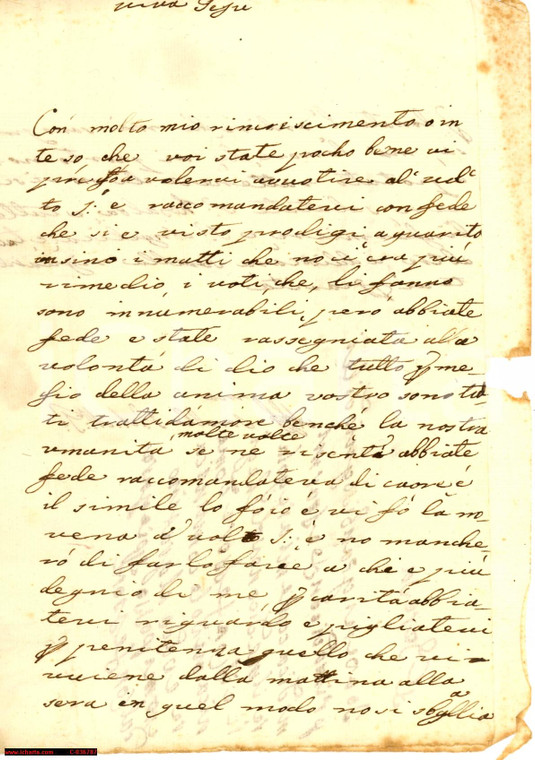 viva Gesu
Con molto mio rincriscimento o in
teso, che voi state pocho bene vi
volervi
to S: e raccomandatevi con fede
che si e visto prodigi a guarito
insino i matti che no ci era più
rimedio, i voti, che, li fanno
sono innumerabili, però abbiate
fede e state rassegniata alla
volontá di dio che tutto
gio della anima vostro sono tut
ti tratti d'amore benche la nostra
umanita se ne molte volte risente abbiate
fede raccomandateva di cuore é
il simile lo fó io é vi fó la no
vena é no manche
ró di farlo fare a chi e più
degnio di me carita abbia
tevi riguardo e pigliatevi
penitenza quello che vi
viene dalla mattina alla
sera in quel modo no si sbaglia
www.icharta.com